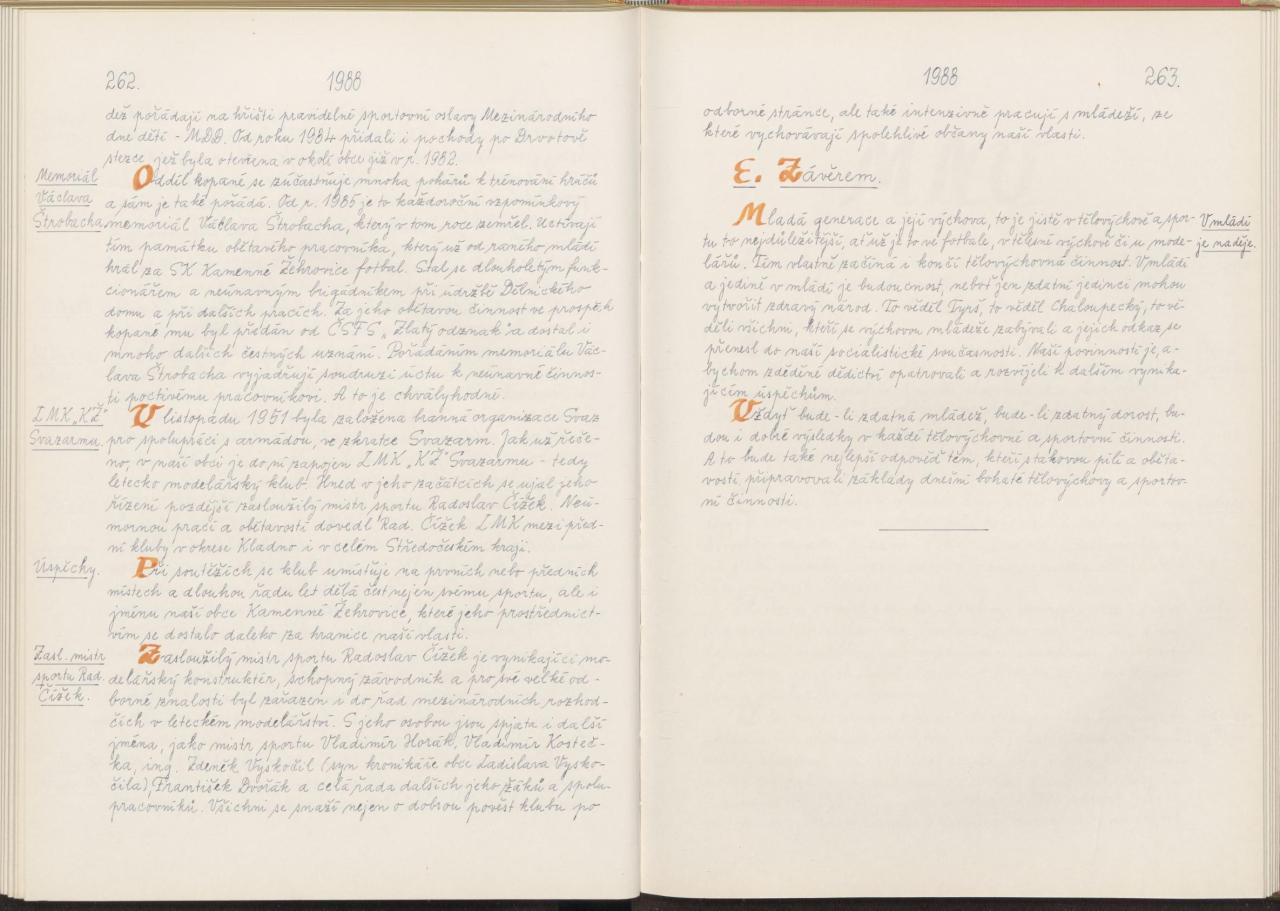 262.
1988
dež pořádají na hřišti pravidelné sportovní oslavy Mezinárodního
dne dětí - MDD. Od roku 1984 přidali i pochody po Drvotově
stezce, jež byla otevřena v okolí obce již v r. 1982.
Memoriál
Václava
Štrobacha
Oddíl kopané se zúčastňuje mnoha pohárů k trénování hráčů
a sám je také pořádá. Od r. 1985 je to každoroční vzpomínkový
memoriál Václava Štrobacha, který v tom roce zemřel. Uctívají
tím památku obětavého pracovníka, který už od raného mládí
hrál za SK Kamenné Žehrovice fotbal. Stal se dlouholetým funk-
cionářem a neúnavným brigádníkem při údržbě Dělnického
domu a při dalších pracích. Za jeho obětavou činnost ve prospěch
kopané mu byl předán od ČSFS „Zlatý odznak" a dostal i
mnoho dalších čestných uznání. Pořádáním memoriálu Vác-
lava Štrobacha vyjadřují soudruzi úctu k neúnavné činnos-
ti poctivému pracovníkovi. A to je chvályhodné.
LMK „KŽ"
Svazarmu
V listopadu 1951 byla založena branná organizace Svaz
pro spolupráci s armádou, ve zkratce Svazarm. Jak už řeče-
no, v naší obci je do ní zapojen LMK „KŽ" Svazarmu - tedy
letecko modelářský klub. Hned v jeho začátcích se ujal jeho
řízení pozdější zasloužilý mistr sportu Radoslav Čížek. Neú-
mornou prací a obětavostí dovedl Rad. Čížek LMK mezi před-
ní kluby v okrese Kladno i v celém Středočeském kraji.
Úspěchy.
Při soutěžích se klub umísťuje na prvních nebo předních
místech a dlouhou řadu let dělá čest nejen svému sportu, ale i
jménu naší obce Kamenné Žehrovice, které jeho prostřednict-
vím se dostalo daleko za hranice naší vlasti.
Zasl. mistr
sportu Rad.
Čížek.
Zasloužilý mistr sportu Radoslav Čížek je vynikající mo-
delářský konstruktér, schopný závodník a pro své velké od-
borné znalosti byl zařazen i do řad mezinárodních rozhod-
čích v leteckém modelářství. S jeho osobou jsou spjata i další
jména, jako mistr sportu Vladimír Horák, Vladimír Kosteč-
ka, ing. Zdeněk Vyskočil (syn kronikáře obce Ladislava Vysko-
čila), František Dvořák a celá řada dalších jeho žáků a spolu-
pracovníků. Všichni se snaží nejen o dobrou pověst klubu po
1988
263.
odborné stránce, ale také intenzivně pracují s mládeží, ze
které vychovávají spolehlivé občany naší vlasti.
E. Závěrem.
V mládí
je naděje.
Mladá generace a její výchova, to je jistě v tělovýchově a spor-
tu to nejdůležitější, ať už je to ve fotbale, v tělesné výchově či u mode-
lářů. Tím vlastně začíná i končí tělovýchovná činnost. V mládí
a jedině v mládí je budoucnost, neboť jen zdatní jedinci mohou
vytvořit zdravý národ. To věděl Tyrš, to věděl Chaloupecký, to vě-
děli všichni, kteří se výchovou mládeže zabývali a jejich odkaz se
přenesl do naší socialistické současnosti. Naší povinností je, a-
bychom zděděné dědictví opatrovali a rozvíjeli k dalším vynika-
jícím úspěchům.
Vždyť bude-li zdatná mládež, bude-li zdatný dorost, bu-
dou i dobré výsledky v každé tělovýchovné a sportovní činnosti.
A to bude také nejlepší odpověď těm, kteří s takovou pílí a oběta-
vostí, připravovali základy dnešní bohaté tělovýchovy a sportov-
ní činnosti.